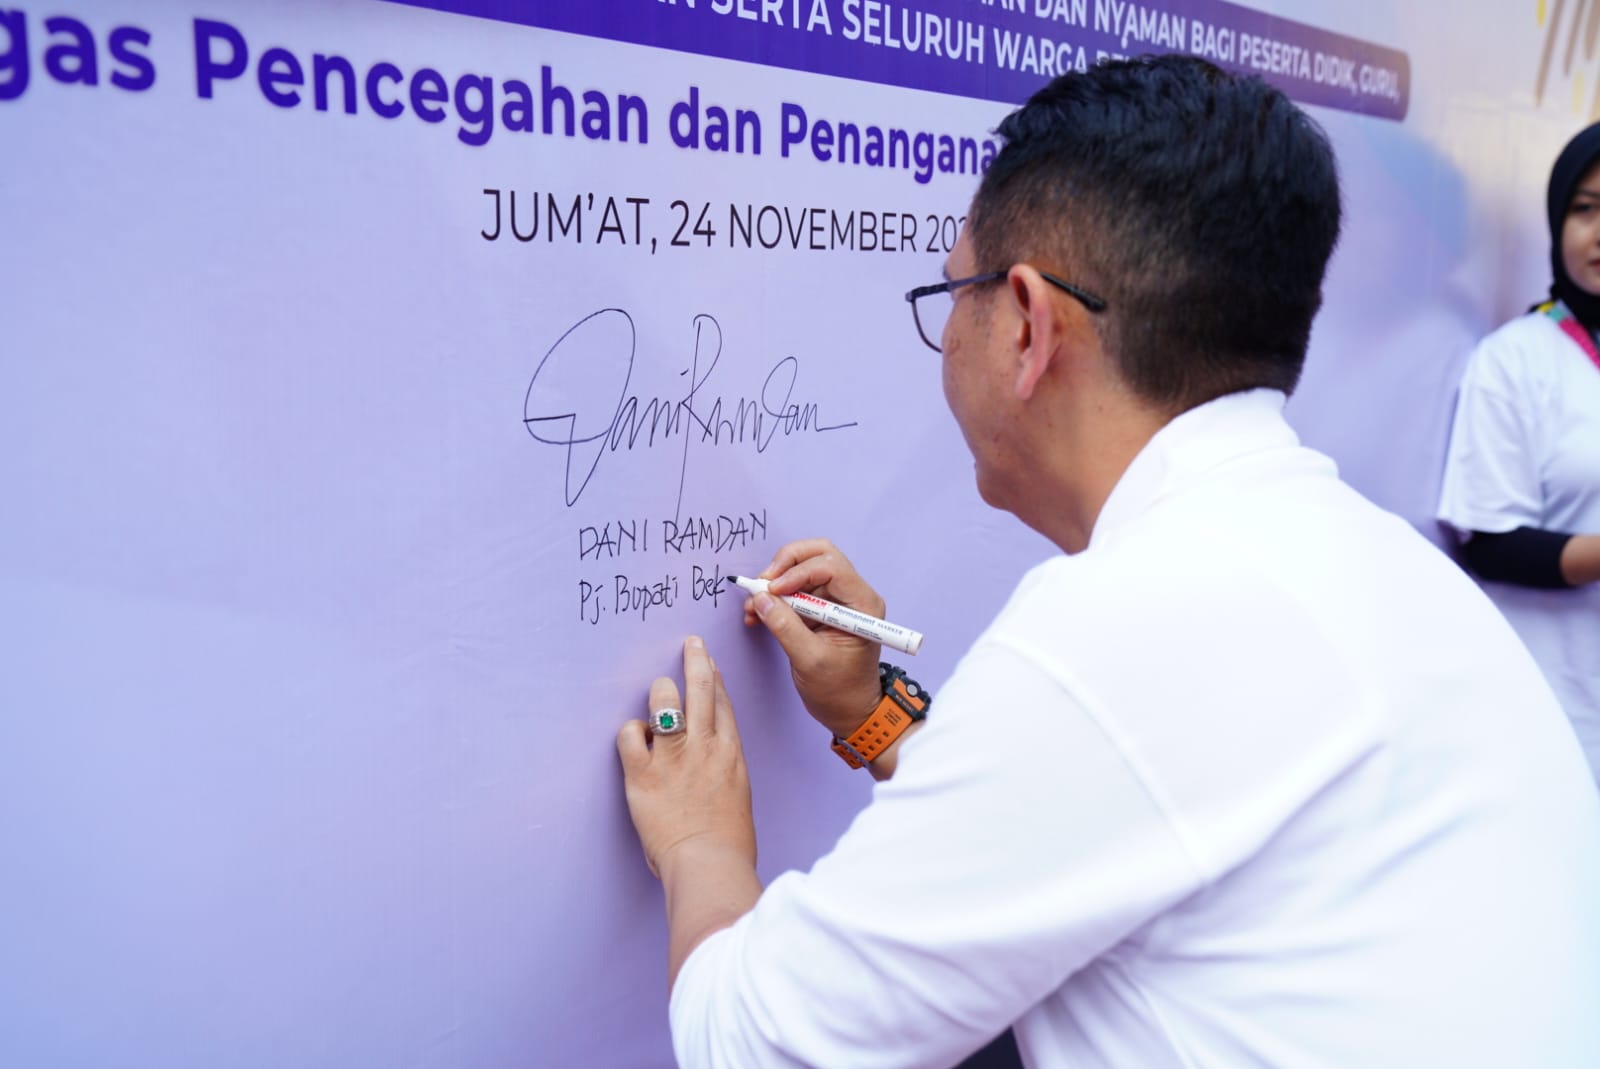 AN DAN NYAMAN BAGI PESERTA DIDIK, GURU,
AN SERTA SELURUH WARGA
gas Pencegahan dan Penangana
JUM'AT, 24 NOVEMBER 202
Dani Ramdan
DANI RAMDAN
Pj. Bupati Bek
SNOWMAN Permanent MARKER